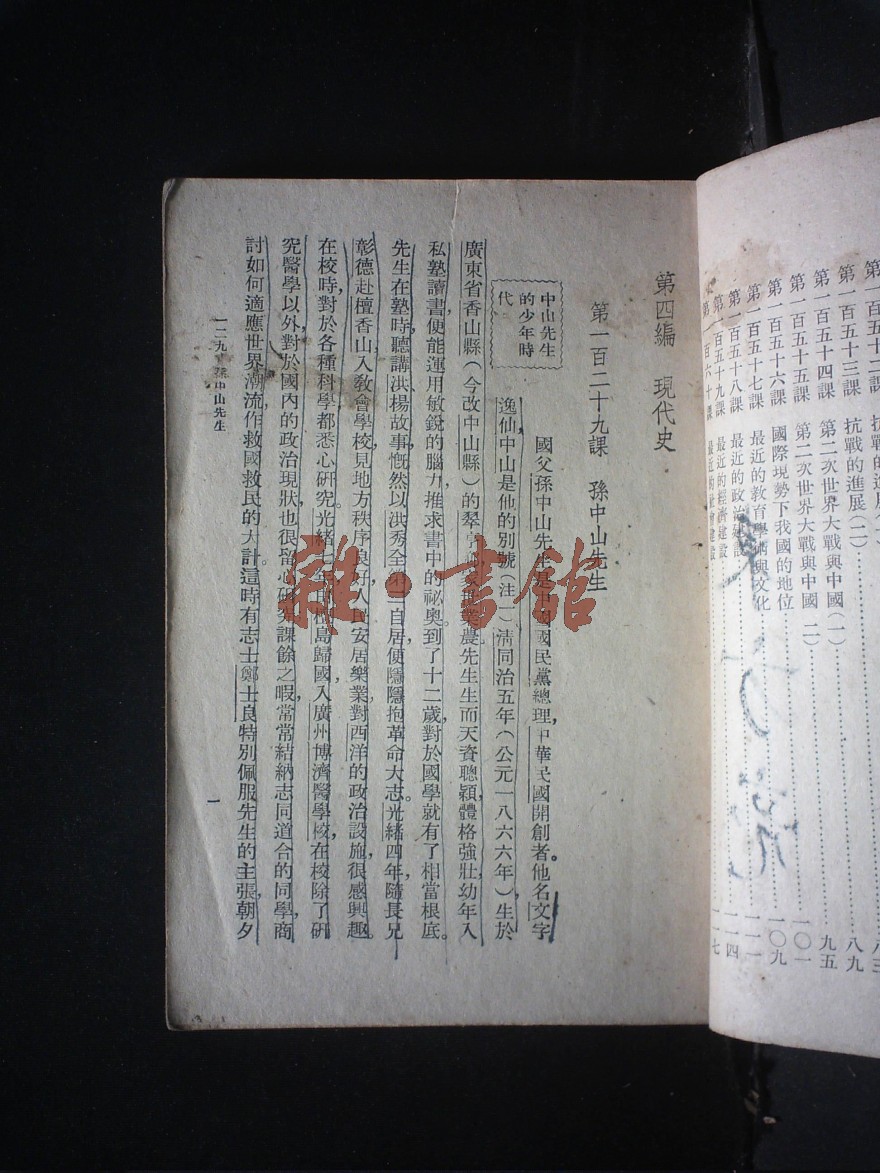 第一百五十二課
第一百五十三課 抗戰的進展(二) 八九
第一百五十四課 第二次世界大戰與中國(一) 九五
第一百五十五課 第二次世界大戰與中國 二) 一〇一
第一百五十六課 國際現勢下我國的地位 一〇九
第一百五十七課 最近的教育學術與文化 一一一
第一百五十八課 最近的政治建設 一一四
第一百五十九課 最近的經濟建設 一一七
第一百六十課 最近的社會建設
第四編 現代史
第一百二十九課 孫中山先生
中山先生
的少年時
代
國父孫中山先生是中國國民黨總理,中華民國開創者。他名文,字
逸仙,中山是他的別號(注一)清同治五年(公元一八六六年)生於
廣東省香山縣(今改中山縣)的翠亨 業農先生生而天資聰穎,體格強壯,幼年入
私塾讀書,便能運用敏銳的腦力,推求書中的祕奧,到了十二歲,對於國學就有了相當根底。
先生在塾時,聽講洪楊故事,慨然以洪秀全第二自居,便隱隱抱革命大志。光緒四年,隨長兄
彰德赴檀香山,入教會學校,見地方秩序良好,人民安居樂業,對西洋的政治設施很感興趣。
在校時,對於各種科學都悉心研究,光緒 島歸國,入廣州博濟醫學校,在校除了研
究醫學以外,對於國內的政治現狀也很留心研究,課餘之暇,常常結納志同道合的同學,商
討如何適應世界潮流,作救國救民的大計,這時有志士鄭士良特別佩服先生的主張,朝夕
一二九 孫中山先生
一
雜·書館